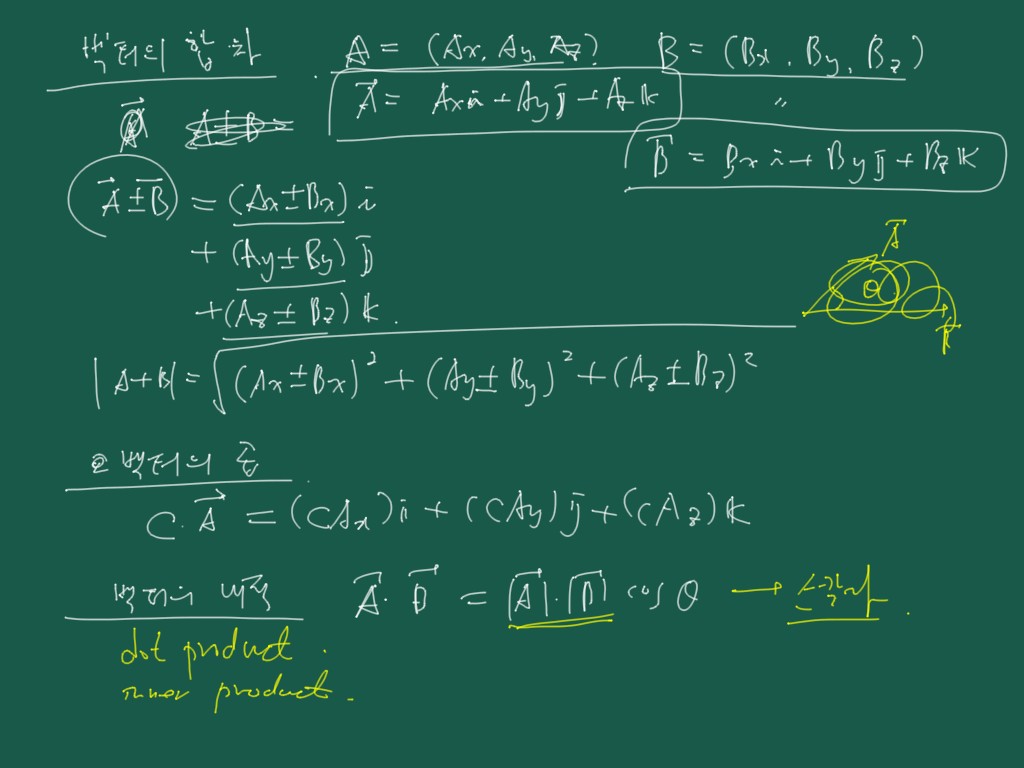 벡터의 합 차
A = (Ax, Ay, Az) B = (Bx, By, Bz)
A⃗ = Axi + Ayj + Azk 〃
A⃗ A±B B⃗ = Bxi + Byj + Bzk
A⃗ ± B⃗ = (Ax±Bx) i
+ (Ay±By) j
+ (Az±Bz) k.
A⃗
θ
B⃗
|A+B| = √(Ax±Bx)² + (Ay±By)² + (Az±Bz)²
벡터의
C·A⃗ = (CAx)i + (CAy)j + (CAz)k
벡터의 내적 A⃗·B⃗ = |A⃗|·|B⃗| cos θ →
dot product.
inner product.